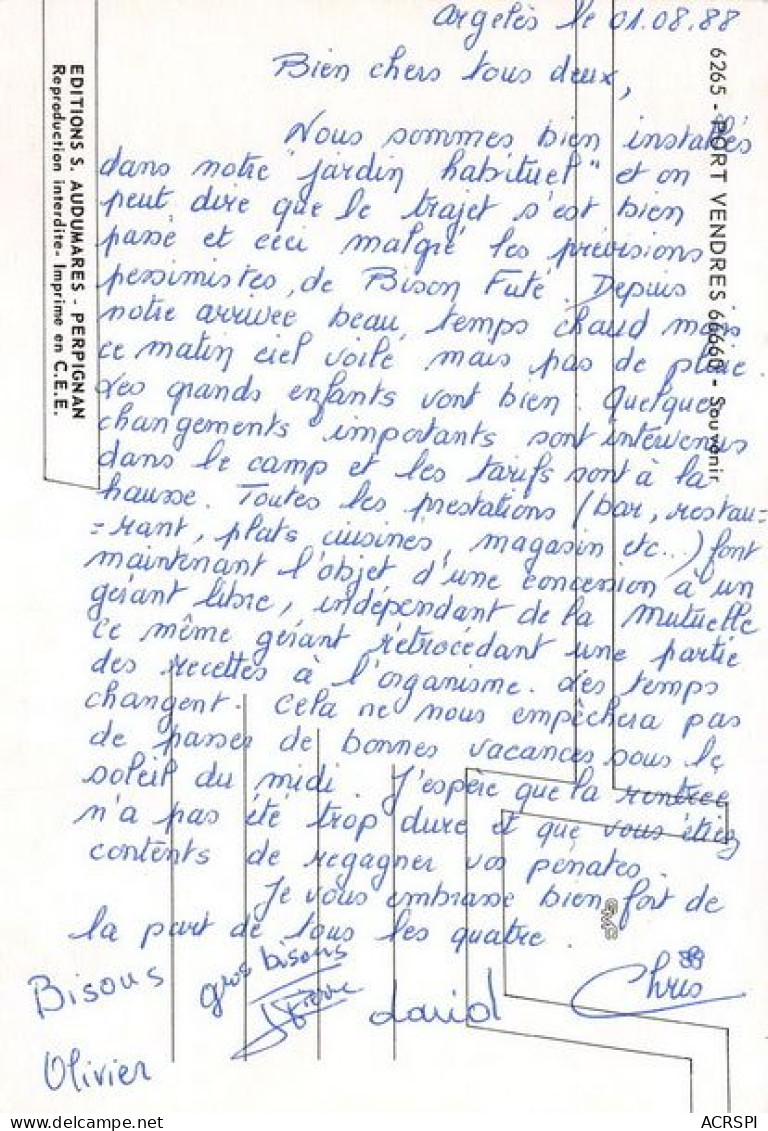 Argelès le 01.08.88
Bien chers tous deux,
Nous sommes bien installés
dans notre "jardin habituel" et on
peut dire que le trajet s'est bien
passé et ceci malgré les prévisions
pessimistes, de Bison Futé. Depuis
notre arrivée beau temps chaud mais
ce matin ciel voilé mais pas de pluie.
Les grands enfants vont bien. Quelques
changements importants sont intervenus
dans le camp et les tarifs sont à la
hausse. Toutes les prestations (bar, restau=
=rant, plats cuisinés, magasin etc...) font
maintenant l'objet d'une concession à un
gérant libre, indépendant de la Mutuelle
Ce même gérant rétrocédant une partie
des recettes à l'organisme. Les temps
changent. Cela ne nous empêchera pas
de passer de bonnes vacances sous le
soleil du midi. J'espère que la rentrée
n'a pas été trop dure et que vous étiez
contents de regagner vos pénates.
Je vous embrasse bien fort de
la part de tous les quatre.
Bisous
Olivier
gros bisous
David
Chris
EDITIONS S. AUDUMARES - PERPIGNAN
Reproduction interdite- Imprime en C.E.E.
6265 - PORT VENDRES 66660 - Souvenir
ACRSPI